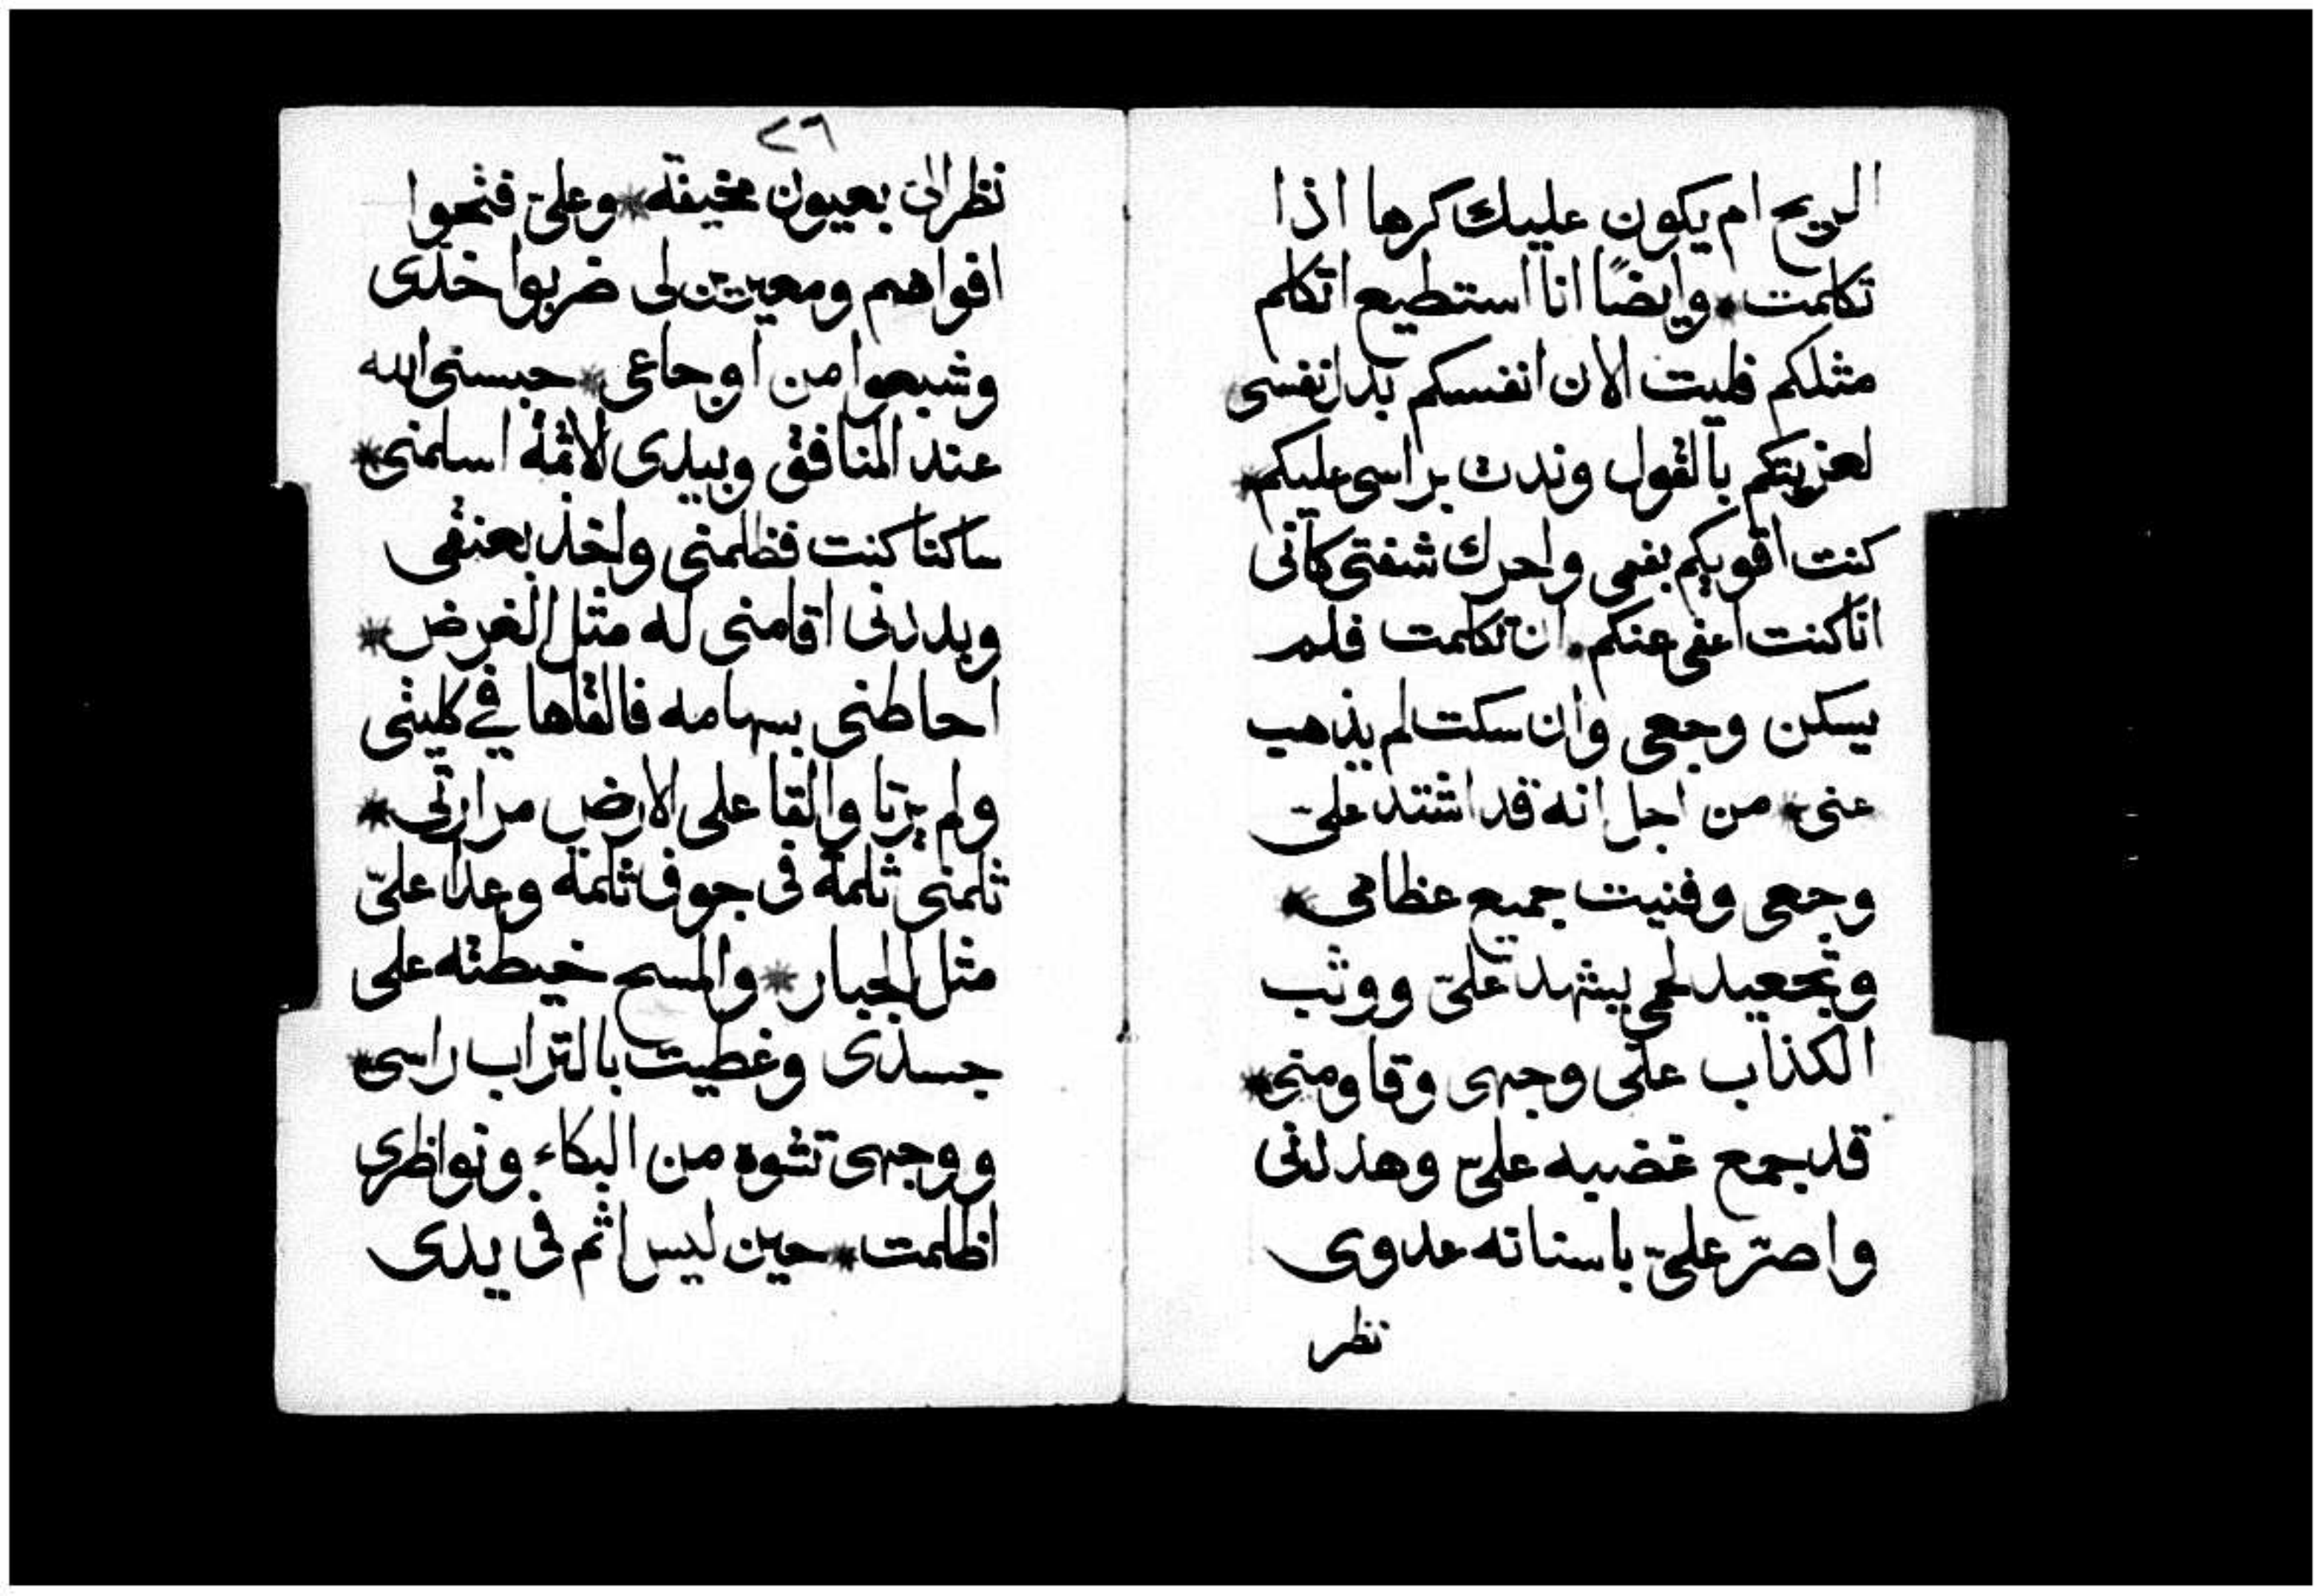 الريح ام يكون عليك كرها اذا
تكلمت * وايضًا انا استطيع اتكلم
مثلكم فليت الان انفسكم بدل نفسى
لعزيتكم بالقول وندت براسى عليكم *
كنت اقويكم بفمى واحرك شفتى كانى
انا كنت اعفى عنكم * ان تكلمت فلم
يسكن وجعى وان سكت لم يذهب
عنى * من اجل انه قد اشتد علىّ
وجعى وفنيت جميع عظامى *
وتجعيد لحمى يشهد علىّ ووثب
الكذاب على وجهى وقاومنى *
قد جمع غضبه علىّ وهدلنى
واصرّ علىّ باسنانه عدوى
نظر
٢٦
نظر الىّ بعيون مخيفة * وعلىّ فتحوا
افواهم ومعيرين لى ضربوا خدى
وشبعوا من اوجاعى * حبسنى الله
عند المنافق وبيدى الاثمة اسلمنى *
ساكنا كنت فظلمنى واخذ بعنقى
وبددنى اقامنى له مثل الغرض *
احاطنى بسهامه فالقاها في كليتى
ولم يرتا والقا على الارض مرارتى *
ثلمنى ثلمة فى جوف ثلمة وعدا علىّ
مثل الجبار * والمسح خيطته على
جسدى وغطيت بالتراب راسى *
ووجهى تشوه من البكاء ونواظرى
اظلمت * حين ليس اثم فى يدى